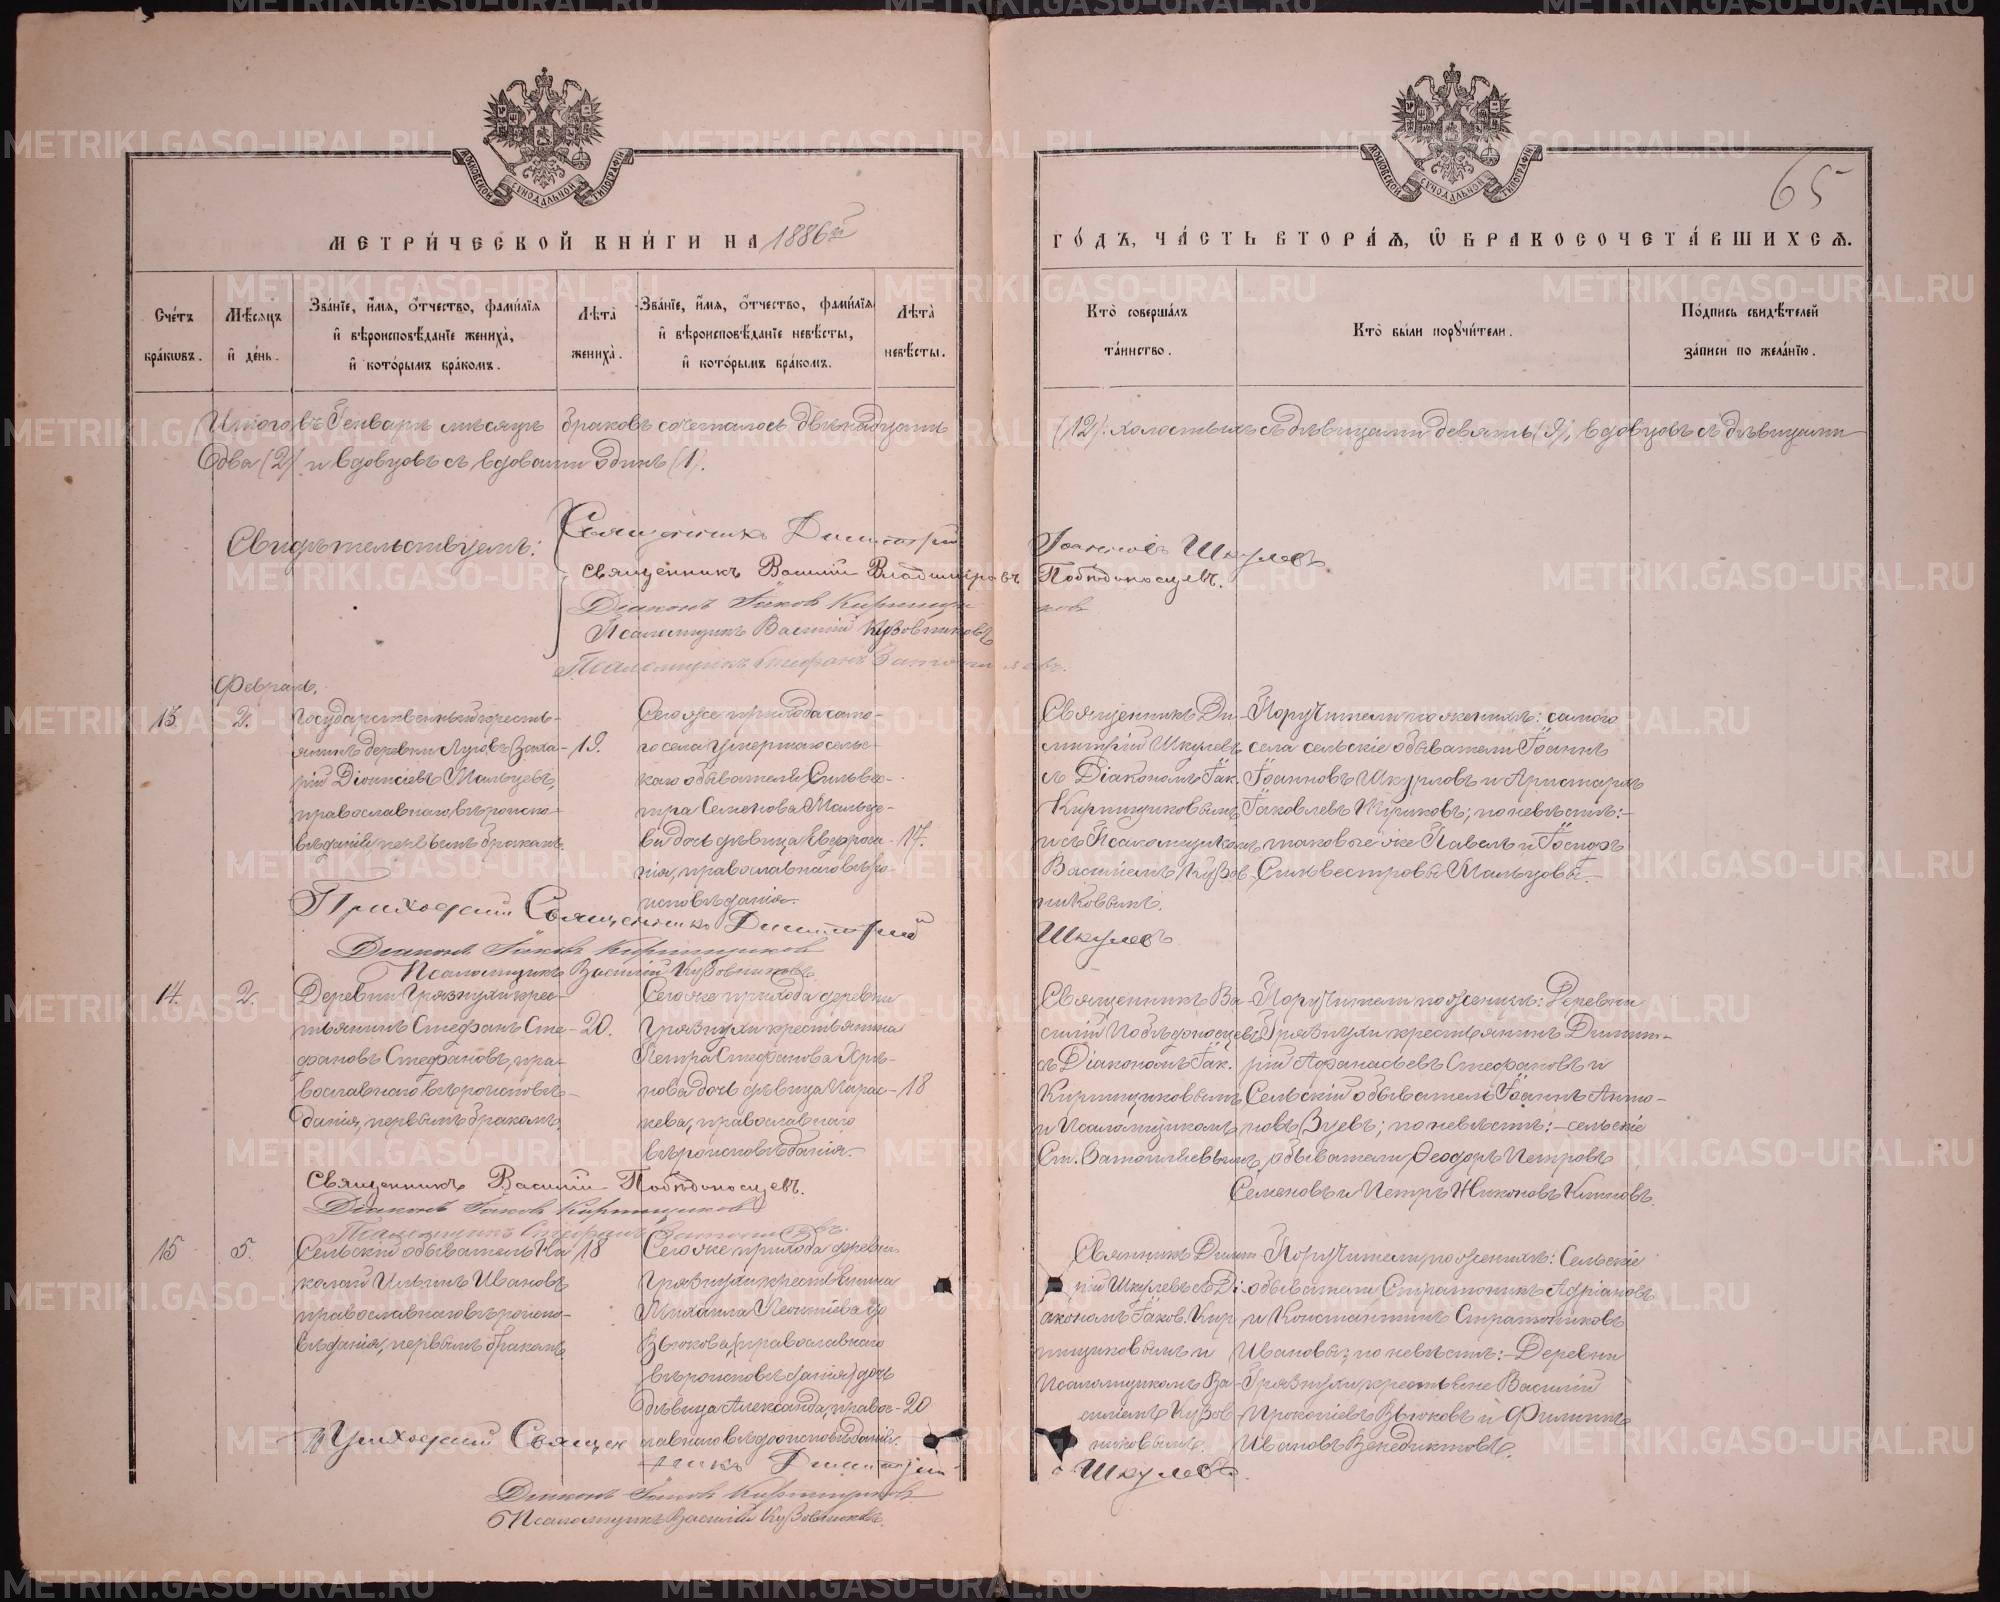 МЕТРИ́ЧЕСКОЙ КНИ́ГИ НА 1886й
ГО́ДЪ, ЧА́СТЬ ВТОРА́Ѧ, Ѿ БРАКОСОЧЕТА́ВШИХСѦ.
65
МОСКОВСКОЙ СѴНОДАЛЬНОЙ ТИПОГРАФІИ
МОСКОВСКОЙ СѴНОДАЛЬНОЙ ТИПОГРАФІИ
Сче́тъ бра́кωвъ.
Мѣ́сяцъ и҆ де́нь.
Зва́нїе, и҆́мѧ, ѻ҆́тчество, фами́лїѧ и҆ вѣроисповѣ́данїе жениха̀, и҆ кото́рымъ бра́комъ.
Лѣ́та жениха̀.
Зва́нїе, и҆́мѧ, ѻ҆́тчество, фами́лїѧ и҆ вѣроисповѣ́данїе невѣ́сты, и҆ кото́рымъ бра́комъ.
Лѣ́та невѣ́сты.
Кто̀ соверша́лъ та́инство.
Кто̀ бы́ли порꙋчи́тели.
По́дпись свидѣ́телей за́писи по жела́нїю.
Итого въ Генварѣ мѣсяцѣ браковъ сочеталось двѣнадцать
(12): холостыхъ съ дѣвицами девять (9), вдовцовъ съ дѣвицами
два (2) и вдовцовъ съ вдовами одинъ (1).
Свидѣтельствуемъ:
Священникъ Димитрій Іоанновъ Шкулевъ
священникъ Василій Владиміровъ Побѣдоносцевъ.
Діаконъ Іаковъ Кирпищиковъ
Псаломщикъ Василій Кузовниковъ
Псаломщикъ Стефанъ
Февраль.
13.
2.
Государственный кресть-
янинъ деревни Заха-
рій Діонисіевъ Мальцевъ,
православнаго вѣроиспо-
вѣданія, первымъ бракомъ.
19.
Сего же прихода само-
го села сельс-
каго обывателя Сильве-
стра Семенова Мальце-
ва дочь дѣвица Евфроси-
нія, православнаго вѣро-
исповѣданія.
17.
Священникъ Ди-
митрій Шкулевъ
съ Діакономъ Іак.
Кирпищиковымъ
и съ Псаломщикомъ
Василіемъ Кузов-
никовымъ.
Поручители по женихѣ: самого
села сельскіе обыватели Іоаннъ
Іоанновъ и Аристархъ
Іаковлевъ; по невѣстѣ:-
таковые же Павелъ и Іосифъ
Сильвестровы Мальцовы.
Приходскій Священникъ Димитрій Шкулевъ
Діаконъ Іаковъ Кирпищиковъ
Псаломщикъ Василій Кузовниковъ
14.
2.
Деревни Грязнухи крес-
тьянинъ Стефанъ Сте-
фановъ Стефановъ, пра-
вославнаго вѣроисповѣ-
данія, первымъ бракомъ.
20.
Сего же прихода деревни
Грязнухи крестьянина
Петра Стефанова
дочь дѣвица Парас-
кева, православнаго
вѣроисповѣданія.
18
Священникъ Ва-
силій Побѣдоносцевъ
съ Діакономъ Іак.
Кирпищиковымъ
и Псаломщикомъ
Поручители по женихѣ: Деревни
Грязнухи крестьянинъ Димит-
рій Афанасьевъ Стефановъ и
Сельскій обыватель Іоаннъ Анто-
новъ Зуевъ; по невѣстѣ:-сельскіе
обыватели Ѳеодоръ Петровъ
Семеновъ и Петръ Никоновъ
Священникъ Василій Побѣдоносцевъ.
Діаконъ Іаковъ Кирпищиковъ
Псаломщикъ Стефанъ
15
5.
Сельскій обыватель Ни-
колай Ильинъ Ивановъ
православнаго вѣроиспо-
вѣданія, первымъ бракомъ.
18
Сего же прихода деревни
Грязнухи крестьянина
Михаила Леонтіева
Вьюкова, (православнаго
вѣроисповѣданія) дочь
дѣвица Александра, правос-
лавнаго вѣроисповѣданія.
20
Димит-
рій Шкулевъ съ Ді-
акономъ Іаков. Кир-
пищиковымъ и
Псаломщикомъ Ва-
силіемъ Кузов-
никовымъ.
Поручители по женихѣ: Сельскіе
обыватели Стратоникъ Адріановъ
и Константинъ Стратониковъ
Ивановы; по невѣстѣ:-Деревни
Грязнухи крестьяне Василій
Прокопіевъ Вьюковъ и Филиппъ
Ивановъ Венедиктовъ.
Приходскій Священникъ Димитрій Шкулевъ.
Діаконъ Іаковъ Кирпищиковъ
Псаломщикъ Василій Кузовниковъ.
METRIKI.GASO-URAL.RU